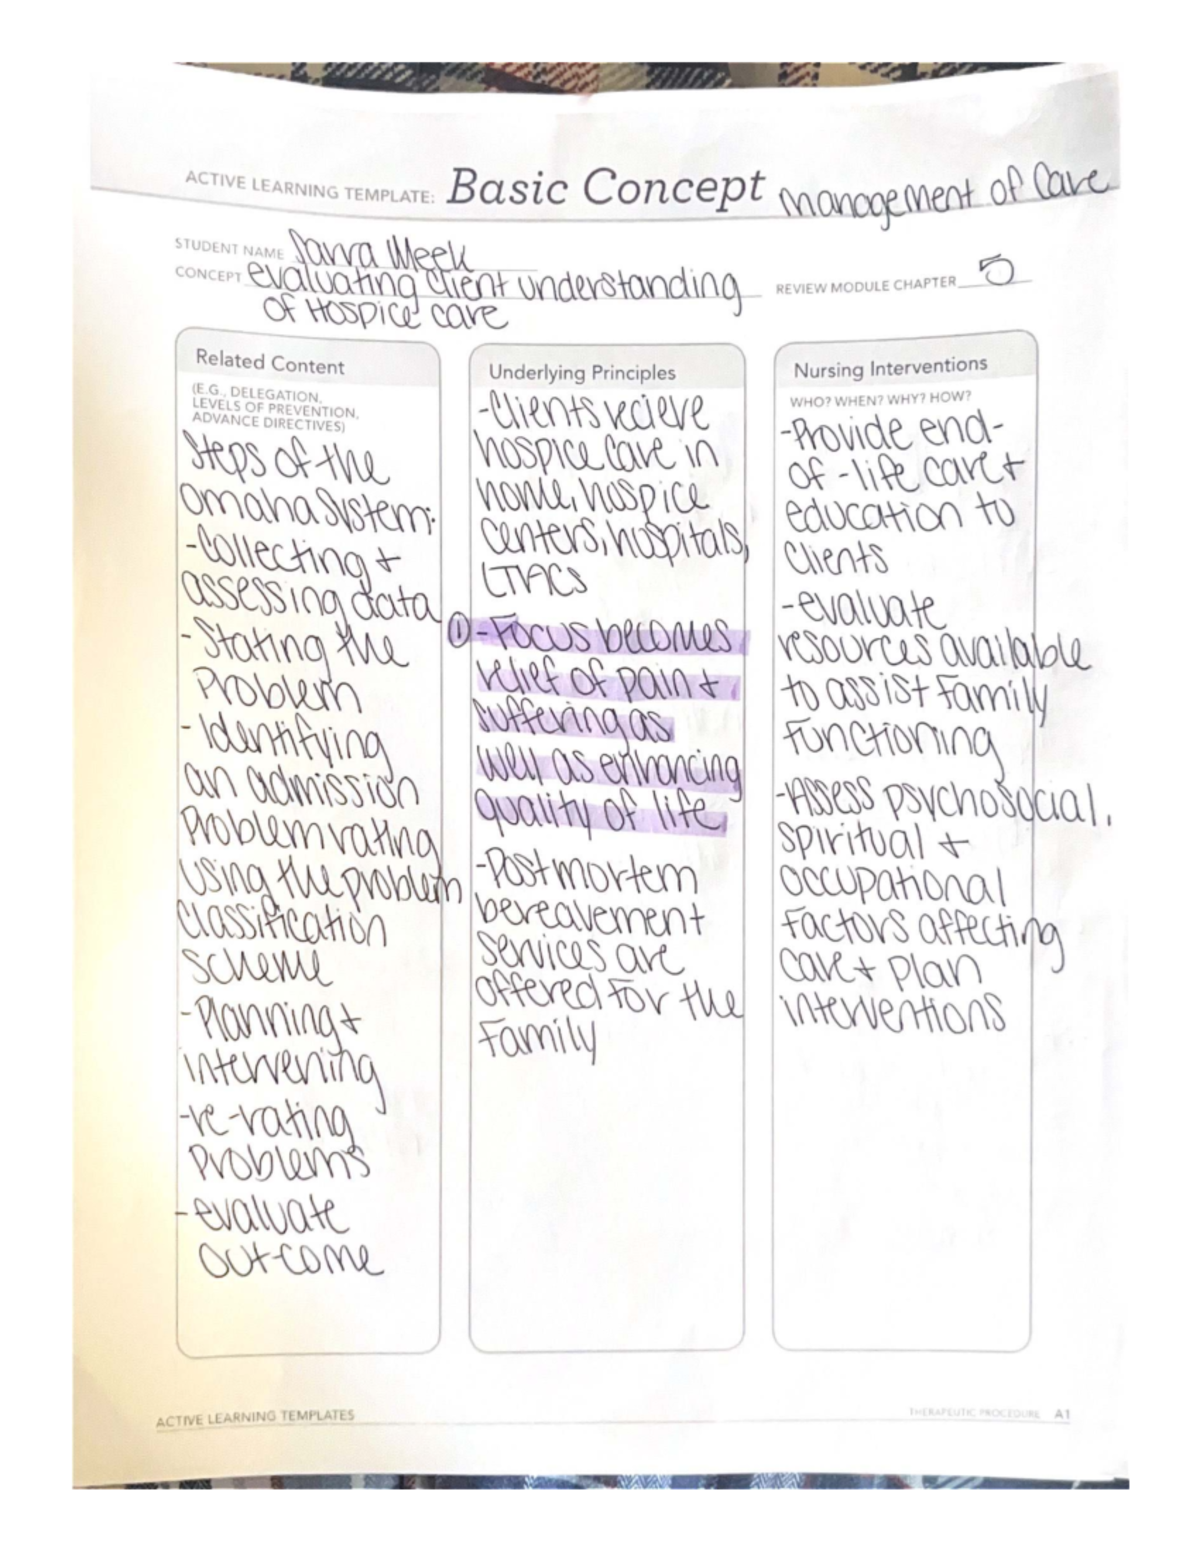 ACTIVE LEARNING TEMPLATE: Basic Concept Management of Care
STUDENT NAME Sarra Meek
CONCEPT evaluating client understanding
of Hospice care
REVIEW MODULE CHAPTER 5
Related Content
(E.G., DELEGATION,
LEVELS OF PREVENTION,
ADVANCE DIRECTIVES)
Steps of the
Omaha System:
-Collecting +
assessing data
-Stating the
Problem
-Identifying
an admission
Problem rating
using the problem
Classification
Scheme
-Planning +
intervening
-re-rating
Problems
-evaluate
outcome
Underlying Principles
-Clients recieve
hospice care in
home, hospice
centers, hospitals,
LTACS
① -Focus becomes
relief of pain +
suffering as
well as enhancing
quality of life
-Postmortem
bereavement
services are
offered for the
Family
Nursing Interventions
WHO? WHEN? WHY? HOW?
-Provide end-
of-life care +
education to
Clients
-evaluate
resources available
to assist family
functioning
-Assess psychosocial,
spiritual +
occupational
factors affecting
care + plan
interventions
ACTIVE LEARNING TEMPLATES
THERAPEUTIC PROCEDURE A1